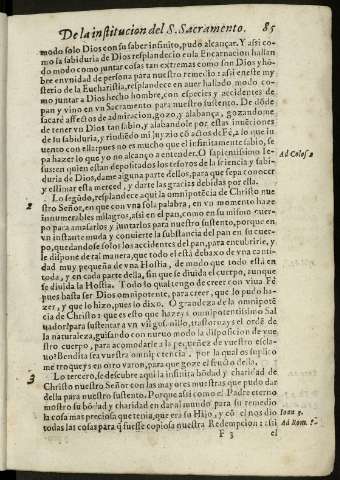 De la institucion del S. Sacramento. 85
modo solo Dios con su saber infinito, pudo alcançar. Y assi co-
mo la sabiduria de Dios resplandecio en la Encarnacion hallan
do modo como juntar cosas tan extremas como son Dios y hõ-
bre en vnidad de persona para nuestro remedio: assi en este my
sterio de la Eucharistia, resplandece en auer hallado modo co-
mo juntar a Dios hecho hombre, con especies y accidentes de
pan y vino en vn Sacramento para nuestro sustento. De dõde
sacarè affectos de admiracion, gozo, y alabança, gozandome
de tener vn Dios tan sabio, y alabandole por estas inuẽciones
de su sabiduria, y rindiẽdo mi juyzio cõ actos de Fè, a lo que in
uento con ella: pues no es mucho que el infinitamente sabio, se
pa hazer lo que yo no alcanço a entender. O sapientissimo Ie-
sus en quien estan depositados los tesoros de la sciencia y sabi-
duria de Dios, dame alguna parte dellos, para que sepa conocer
y estimar esta merced, y darte las gracias debidas por ella.
Ad Colos. 2
2 Lo segũdo, resplandece aqui la omnipotẽcia de Christo nue
stro Señor, en que con vna sola palabra, en vn momento haze
innumerables milagros, assi en el pan, como en su mismo cuer-
po para amasarlos y juntarlos para nuestro sustento, porque en
vn instante muda y conuierte la substancia del pan en su cuer-
po, quedandose solos los accidentes del pan, para encubrirle, y
le dispone de tal manera, que todo el està debaxo de vna canti-
dad muy pequeña de vna Hostia, de modo que todo està en
toda, y en cada parte della, sin que se diuida el cuerpo, aunque
se diuida la Hostia. Todo lo qual tengo de creer con viua Fè
pues basta ser Dios omnipotente, para creer, que lo pudo ha-
zer, y que lo hizo, pues lo dixo. O grandeza de la omnipotẽ
cia de Christo: que es esto que hazeys omnipotentissimo Sal
uador? para sustentar a vn vil gusanillo, trastornays el ordẽ de
la naturaleza, guisando con nueuo modo la disposicion de vue
stro cuerpo, para acomodarle a la pequeñez de vuestro escla-
uo? Bendita sea vuestra omnipotencia, por la qual os suplico
me troqueys en otro varon, para que goze el fructo della.
3 Lo tercero, se descubre aqui la infinita bõdad y charidad de
Christo nuestro Señor con las mayores muestras que pudo dar
della para nuestro sustento. Porque assi como el Padre eterno
mostro su bõdad y charidad en dar al mundo para su remedio
la cosa mas preciosa que tenia, que era su Hijo, y cõ el nos dio
todas las cosas para q̃ fuesse copiosa nuestra Redempcion: assi
Ioan. 3.
Ad Rom. 8.
F 3 el